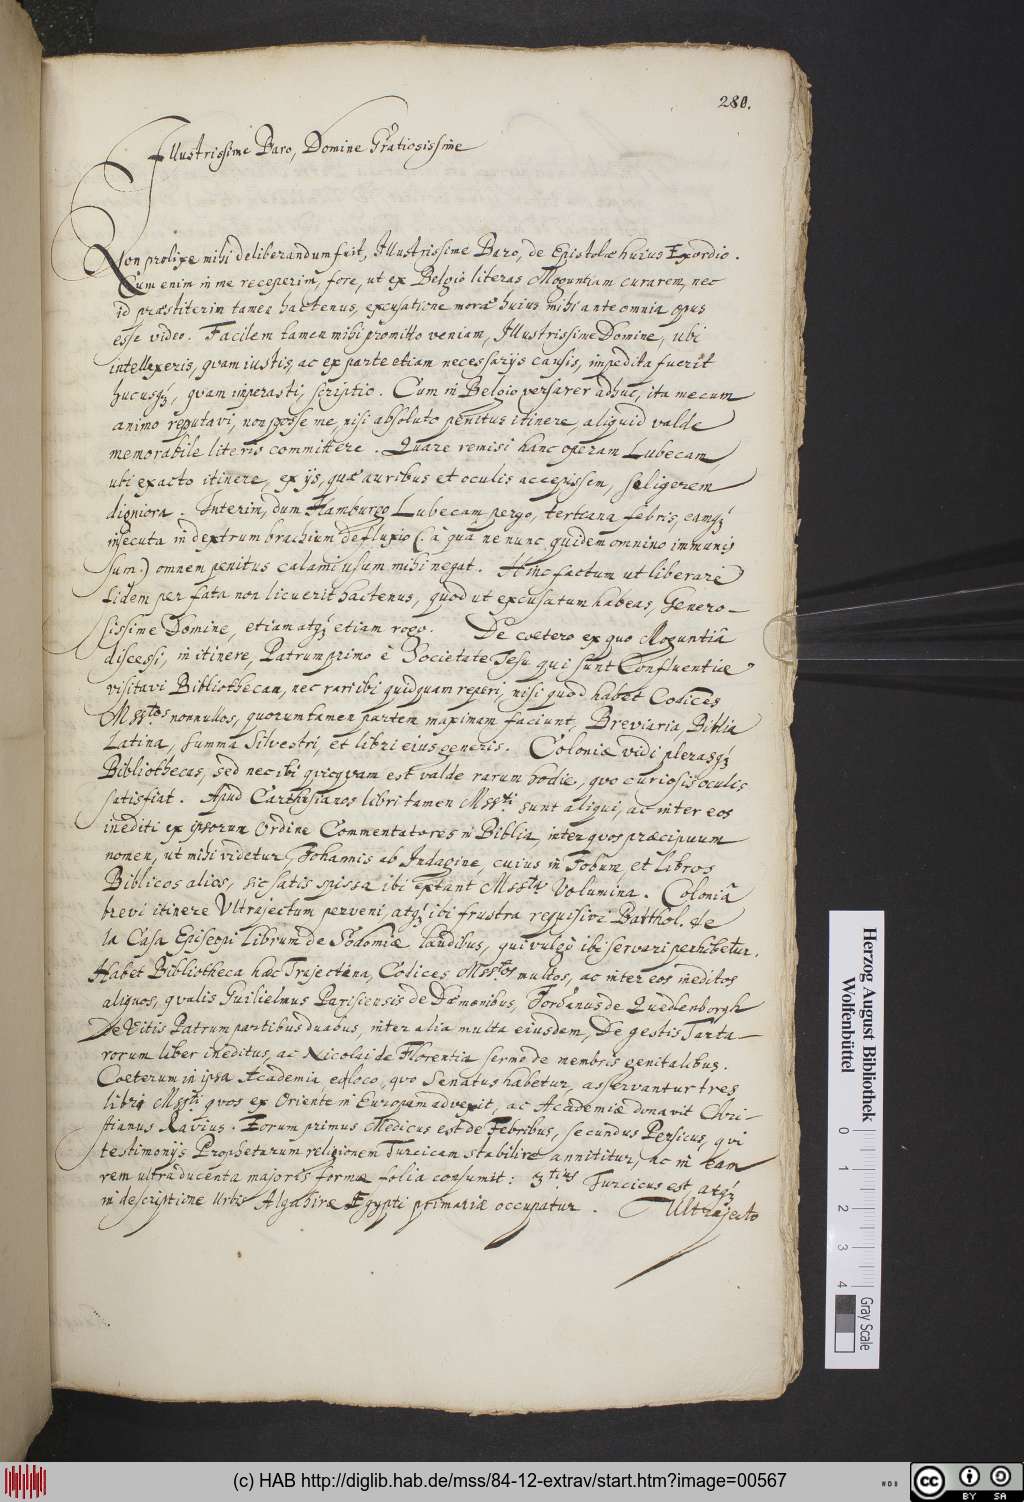 280.
Illustrissime Baro, Domine Gratiosissime
Non prolixe mihi deliberandum fuit, Illustrissime Baro, de Epistolae huius Exordio.
Cum enim in me receperim, fore, ut ex Belgio literas Moguntiam curarem, nec
id praestiterim tamen hactenus, excusatione morae huius mihi ante omnia opus
esse video. Facilem tamen mihi promitto veniam, Illustrissime Domine, ubi
intellexeris, quam iustis, ac ex parte etiam necessarijs causis, impedita fuerit
hucusq;, quam imperasti, scriptio. Cum in Belgio versarer adhuc, ita mecum
animo reputavi, non posse me, nisi absoluto penitus itinere, aliquid valde
memorabile literis committere. Quare remisi hanc operam Lubecam,
ubi exacto itinere, ex ijs, quae auribus et oculis accepissem, seligerem
digniora. Interim, dum Hamburgo Lubecam pergo, tertiana febris, eamq;
insecuta in dextrum brachium defluxio (: à qua ne nunc quidem omnino immunis
sum:) omnem penitus calami usum mihi negat. Hinc factum ut liberare
fidem per fata non licuerit hactenus, quod ut excusatum habeas, Genero-
sissime Domine, etiam atq; etiam rogo. De coetero ex quo Moguntiâ
discessi, in itinere, Patrum primo è Societate Jesu qui sunt Confluentiae
visitavi Bibliothecam, nec rari ibi quidquam reperi, nisi quod habet Codices
Mss.tos nonnullos, quorum tamen partem maximam faciunt, Breviaria, Biblia
Latina, summa Silvestri, et libri eius generis. Coloniae vidi plerasq;
Bibliothecas, sed nec ibi quicquam est valde rarum hodie, quo curiosis oculis
satisfiat. Apud Carthusianos libri tamen Mss.ti sunt aliqui, ac inter eos
inediti ex ipsorum Ordine Commentatores in Biblia, inter quos praecipuum
nomen, ut mihi videtur, Johannis ab Indagine, cuius in Jobum, et libros
Biblicos alios, sic satis spissa ibi extant Mss.ta Volumina. Coloniâ
brevi itinere Ultrajectum perveni, atq; ibi frustra requisivi Barthol. de
la Casa Episcopi librum de Sodomiae laudibus, qui vulgò ibi servari perhibetur.
Habet Bibliotheca haec Trajectana, Codices Mss.tos multos, ac inter eos ineditos
aliquos, qualis Guilielmus Parisiensis de Daemonibus, Jordanus de Quedlenborgh
De Vitis Patrum partibus duabus, inter alia multa eiusdem, De gestis Tarta-
rorum liber ineditus, ac Nicolai de Florentia sermo de membris genitalibus.
Coeterum in ipsa Academia eo loco, quo Senatus habetur, asservantur tres
libri Mss.ti quos ex Oriente in Europam advexit, ac Academiae donavit Chri-
stianus Ravius. Eorum primus Medicus est de Febribus, secundus Persicus, qui
testimonijs Prophetarum religionem Turcicam stabilire annititur, ac in eam
rem ultra ducenta majoris formae folia consumit: 3tius Turcicus est atq;
in descriptione Urbis Algahirae Egypti primariae occupatur. Ultrajecto
Herzog August Bibliothek
Wolfenbüttel
0 1 2 3 4
Gray Scale
(c) HAB http://diglib.hab.de/mss/84-12-extrav/start.htm?image=00567
cc BY SA